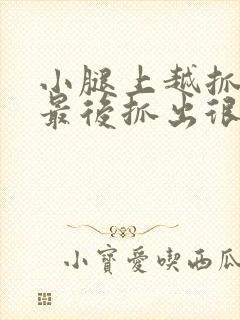 小腿上越抓
最後抓出很
小寶愛喫西瓜